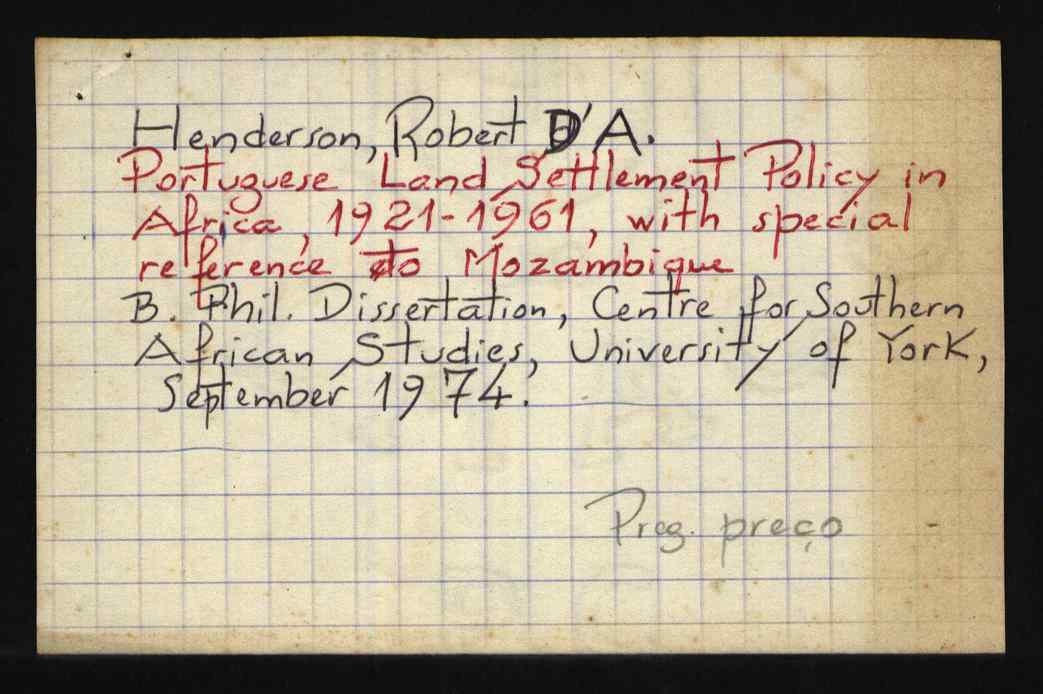 Henderson, Robert D'A.
Portuguese Land Settlement Policy in
Africa, 1921-1961, with special
reference to Mozambique
B. Phil. Dissertation, Centre for Southern
African Studies, University of York,
September 1974.
preço